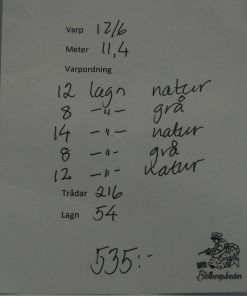 Varp 12/6
Meter 11,4
Varpordning
12 lagn natur
8 –"– grå
14 –"– natur
8 –"– grå
12 –"– natur
Trådar 216
Lagn 54
535:-